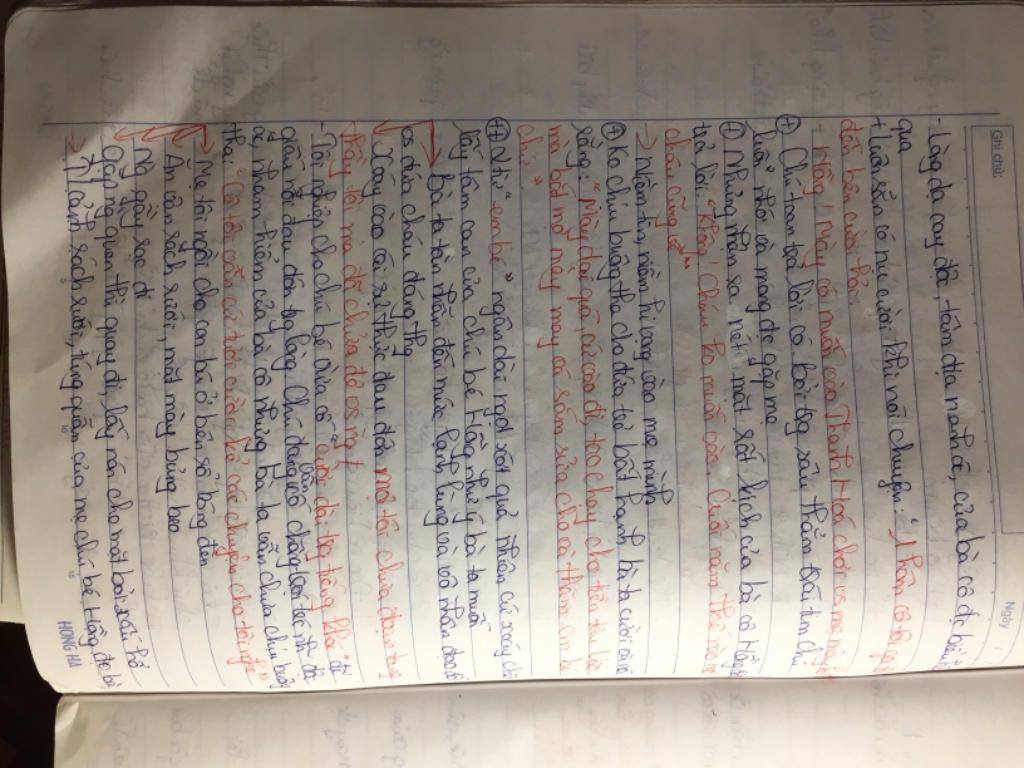 Ghi chú:
Ngày
- Lòng dạ cay độc, tâm địa nanh ác của bà cô đc biểu
qua
+ Luôn sẵn có nụ cười khi nói chuyện: "1 hôm cô tôi gọi
đến bên cười hỏi:
- Hồng! Mày có muốn vào Thanh Hoá chơi vs mẹ mày ko
+ Chú toan trả lời có bởi trg sâu thẳm trái tim chú
luôn nhớ và mong đc gặp mẹ
+ Nhưng nhận ra nét mặt rất kịch của bà cô Hồng
trả lời: "Không! Cháu ko muốn vào. Cuối năm thế nào mợ
cháu cũng về"
-> Niềm tin, niềm hi vọng vào mẹ mình
+ Ko chịu buông tha cho đứa trẻ bất hạnh bà ta cười nói
rằng: "Mày dại quá, cứ vào đi, tao chạy cho tiền tàu. Vào
mà bắt mợ mày may vá sắm sửa cho và thăm em bé
chứ"
+ 2 từ "em bé" ngân dài ngọt xớt quả nhiên cứ xoáy chặt
lấy tâm can của chú bé Hồng như ý bà ta muốn
-> Bà ta tàn nhẫn đến mức lạnh lùng và vô nhân đạo đối
vs đứa cháu đáng thg
Xoáy vào cái sự thực đau đớn mợ tôi chưa đoạn tang
thầy tôi mà đã chửa đẻ vs ng #
- Tội nghiệp cho chú bé vừa cô cười dài trg tiếng khóc để
giấu nỗi đau đớn trg lòng. Chú đang cố chống lại cái tàn
ác, nham hiểm của bà cô nhưng bà ta vẫn chưa chịu buông
tha: "Cô tôi vẫn cứ tươi cười kể các chuyện cho tôi nghe"
Mẹ tôi ngồi cho con bú ở bên rổ bóng đèn
Ăn vận rách rưới, mặt mày búng beo
Ng gầy rạc đi
Gặp ng quen thì quay đi, lấy nón che mặt bởi xấu hổ
-> H/ảnh rách rưới, túng quẫn của mẹ chú bé Hồng đc bà
HONG HA